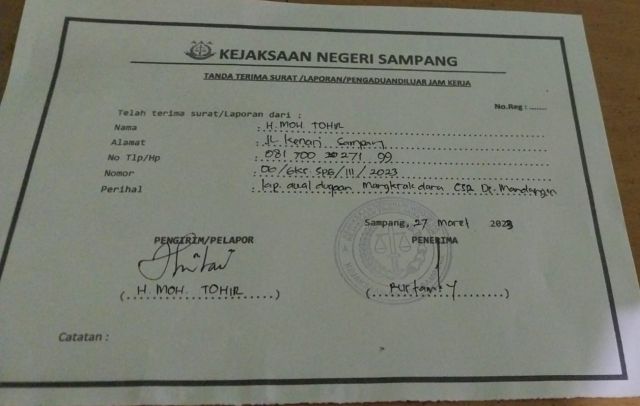 KEJAKSAAN NEGERI SAMPANG
TANDA TERIMA SURAT /LAPORAN/PENGADUANDILUAR JAM KERJA
No.Reg : ........
Telah terima surat/Laporan dari :
Nama : H. MOH TOHIR
Alamat : JL Kenari Sampang
No Tlp/Hp : 081 700 271 99
Nomor : /III/2023
Perihal : Lap. dugaan dana CSR Ds. Mandangin
Sampang, 27 Maret 2023
PENGIRIM/PELAPOR PENERIMA
(H. MOH. TOHIR) ( )
Catatan :